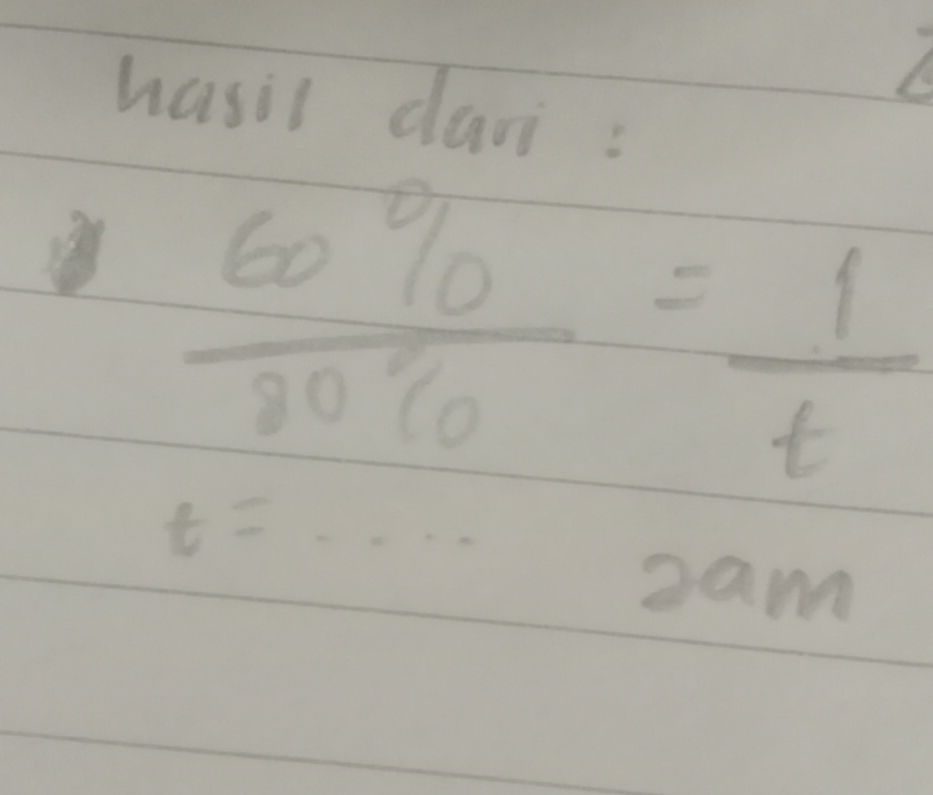 hasil dari :
60 % = 1
80 % t
t = .... Jam